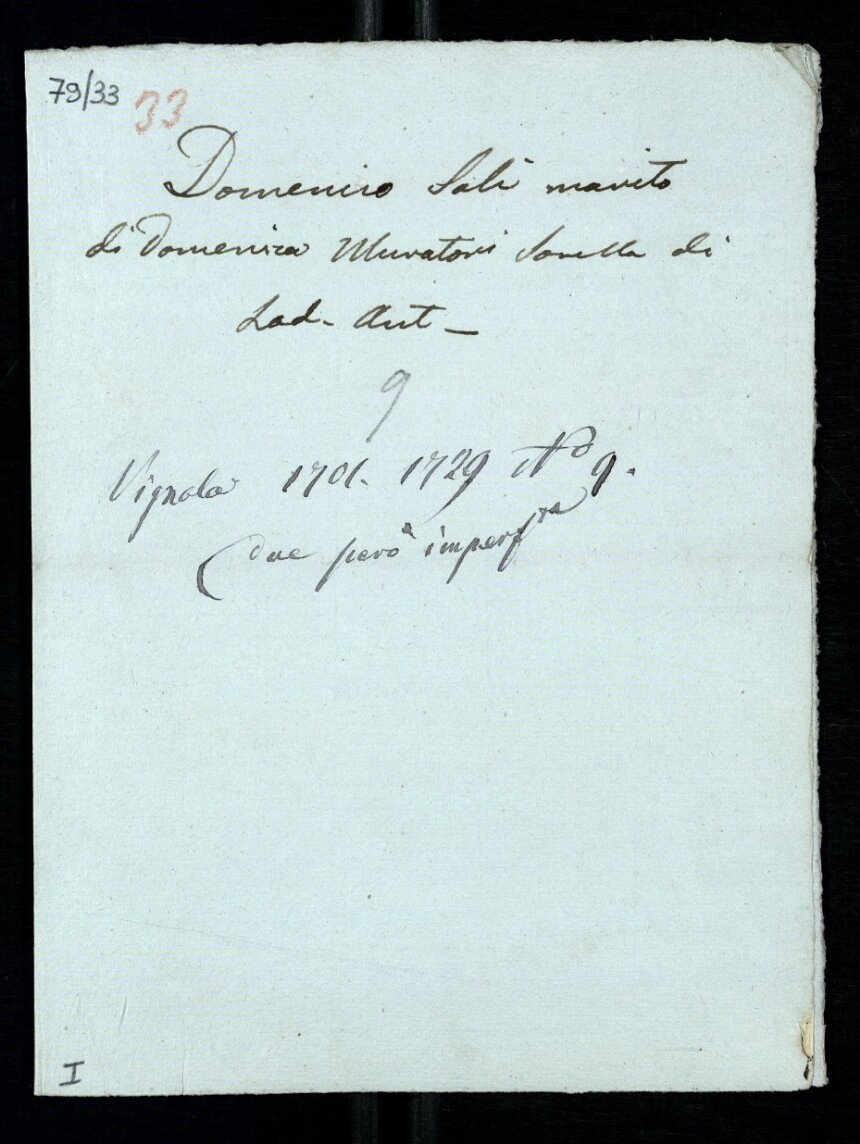 79/33 33
Domenico Sali marito
di Domenica Muratori Sorella di
Lod. Ant_
9
Vignola 1701. 1729 No 9.
(due però imperfte
I